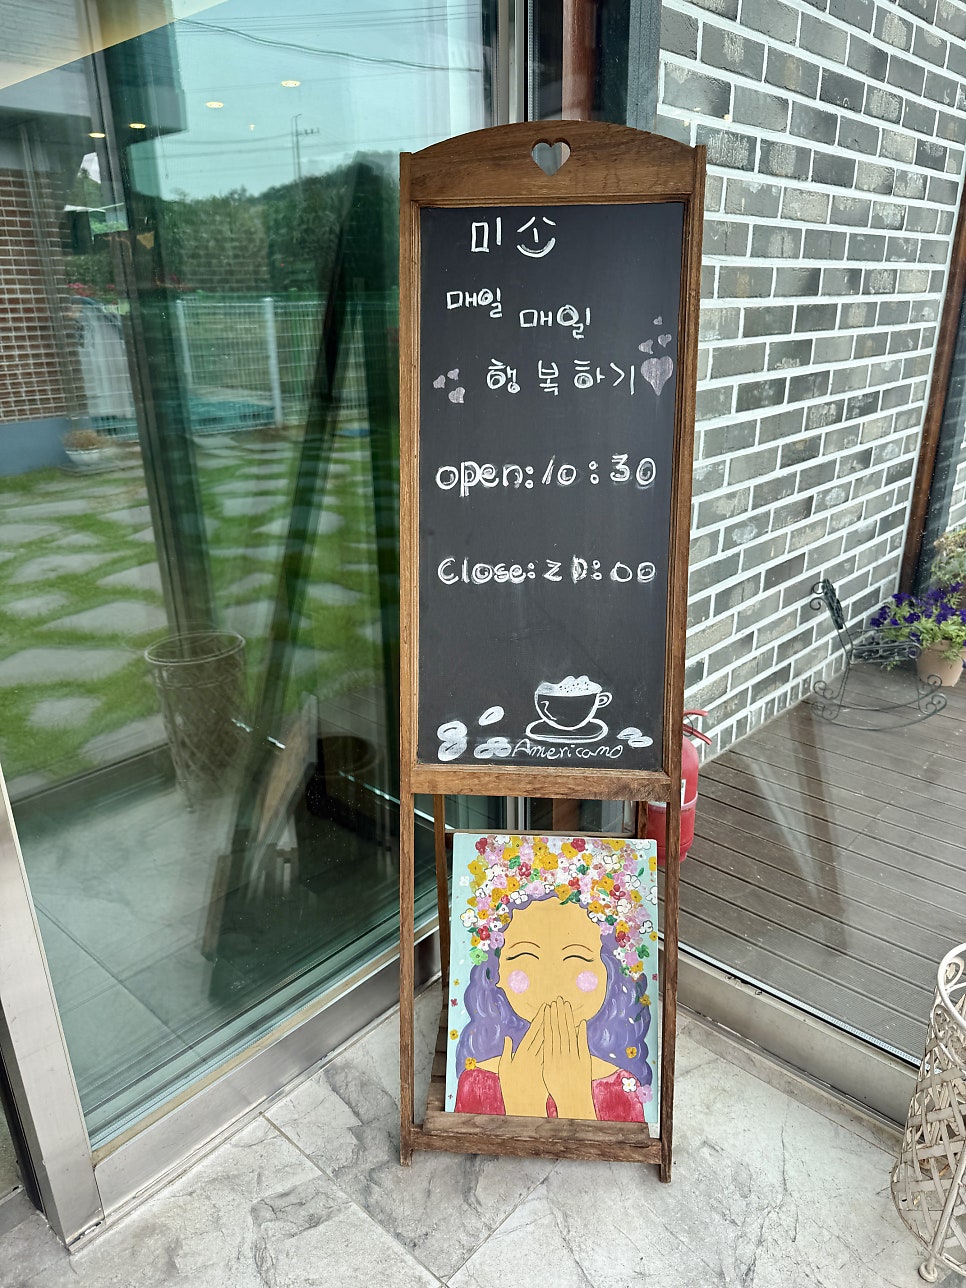 미소
매일
매일
행복하기
open:10:30
Close:20:00
Americano